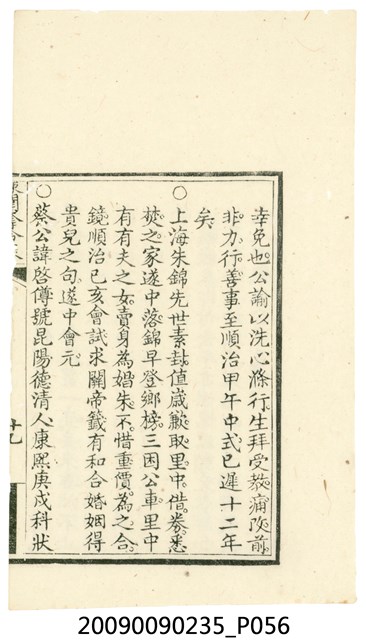 幸免也公諭以洗心滌行生拜受教痛改前
非力行善事至順治甲午中式已遲十二年
矣
○
上海朱錦先世素封值歲歉取里中借券悉
焚之家遂中落錦早登鄉榜三困公車里中
有有夫之女賣身為婚朱不惜重價為之合
鏡順治己亥會試求關帝籤有和合婚姻得
貴兒之句遂中會元
○
蔡公諱啓僔號昆陽德清人康熙庚戌科狀
廿九
20090090235_P056